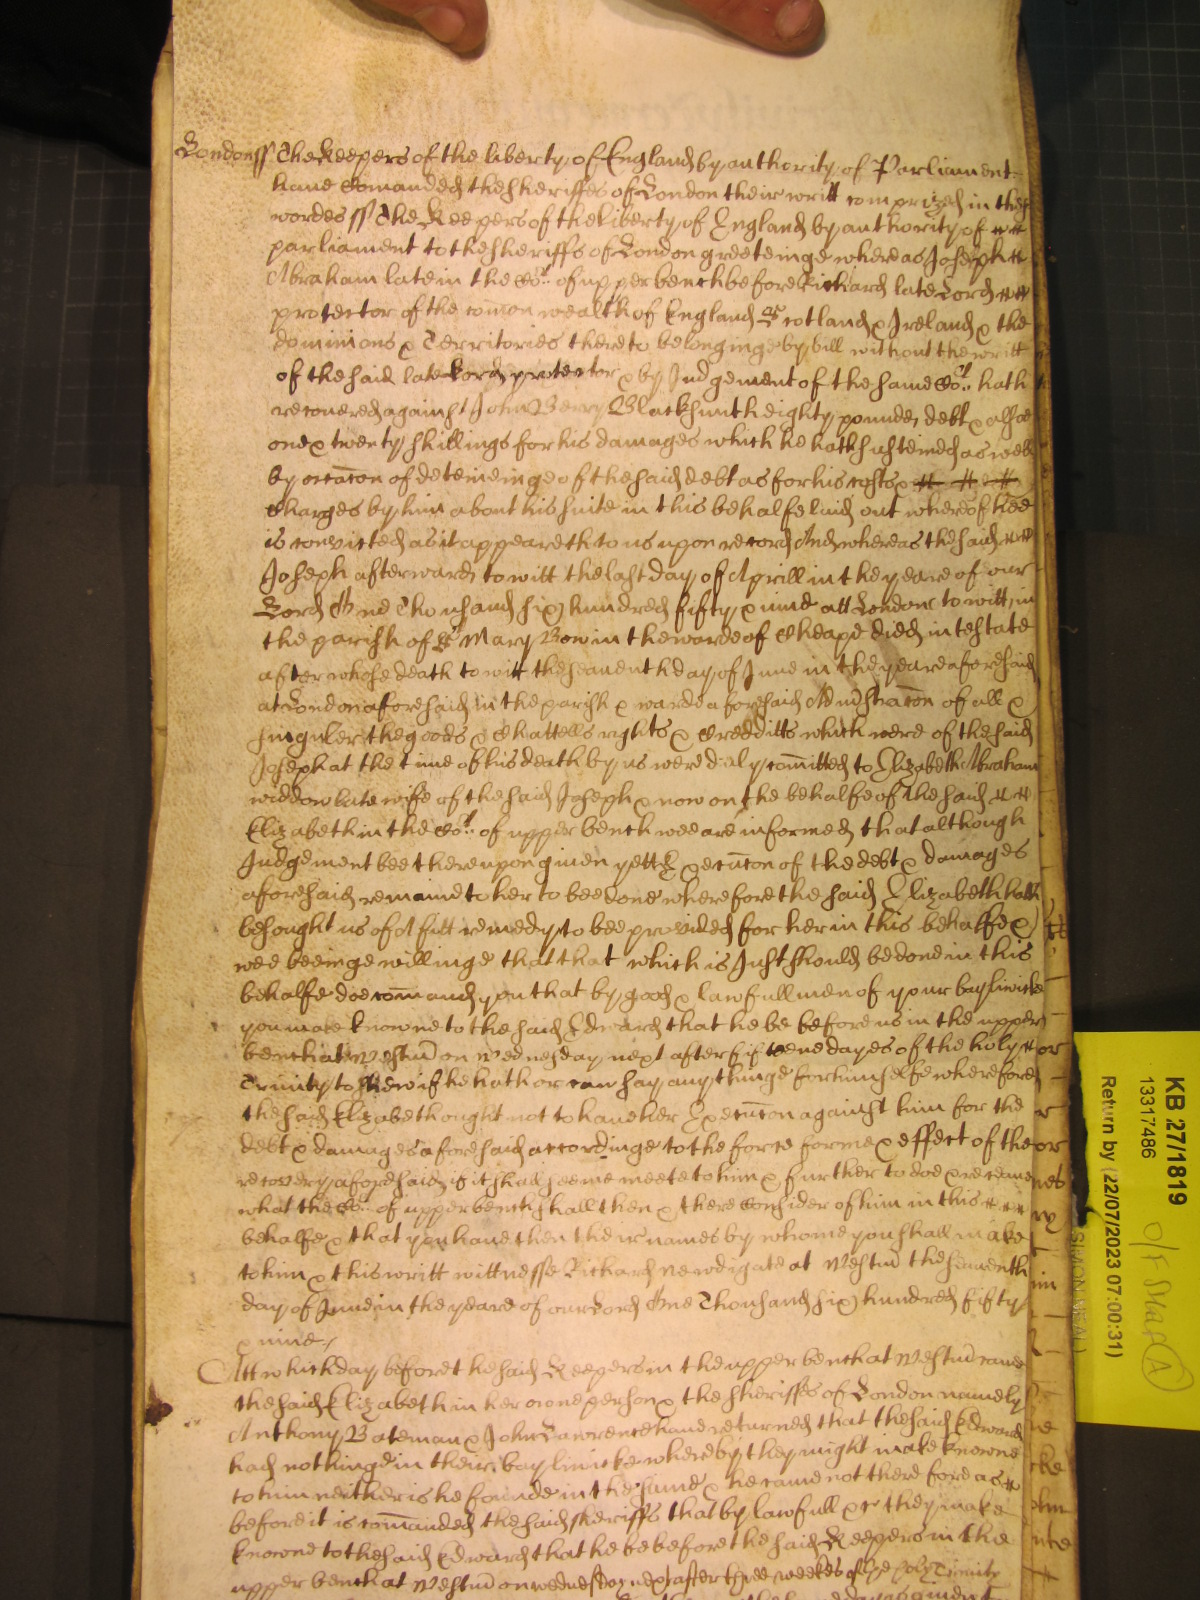 Londonss The Keepers of the liberty of England by authority of Parliament
haue Comanded the Sheriffes of London their writt comprized in these
wordes ss The Keepers of the liberty of England by authority of
parliament to the Sheriffs of London greeteinge whereas Joseph
Abraham late in the Cort of upper bench before Richard late Lord
protector of the comon wealth of England Scotland & Ireland & the
dominions & Territories thereto belonginge by bill without the writt
of the said late Lord protector & by Judgement of the same Cort hath
recouered against John Berry Blacksmith eighty poundes debt & alsoe
one & twenty shillings for his damages which he hath susteined as well
by occacon of deteineinge of the said debt as for his costs &
Charges by him about his suite in this behalfe laid out whereof hee
is convicted as it appeareth to us upon record And whereas the said
Joseph afterwards to witt the last day of Aprill in the yeare of our
Lord One Thousand six hundred fifty & nine att London to witt in
the parish of St Mary Bow in the warde of Cheape died intestate
after whose death to witt the seauenth day of June in the yeare aforesaid
at London aforesaid in the parish & warde aforesaid Administracon of all &
singuler the goods & Chattells rights & Credditts which were of the said
Joseph at the time of his death by us were duly comitted to Elizabeth Abraham
widdow late wife of the said Joseph & now on the behalfe of the said
Elizabeth in the Cort of upper bench wee are informed that although
Judgement bee thereupon giuen yett Execucon of the debt & damages
aforesaid remaine to her to bee done wherefore the said Elizabeth hath
besought us of A fitt remedy to bee provided for her in this behalfe &
wee beeinge willinge that that which is Just should be done in this
behalfe doe comand you that by good & lawfull men of your bayliwicke
you make knowne to the said Edward that he be before us in the upper
bench at Westm on Wednesday next after fifteene dayes of the holy
Trinity to shew if he hath or can say any thinge for himselfe wherefore
the said Elizabeth ought not to haue her Execucon against him for the
debt & damages aforesaid accordinge to the force forme & effect of the
recovery aforesaid if it shall seeme meete to him & further to doe & receaue
what the Cort of upper bench shall then & there Consider of him in this
behalfe & that you haue then there names by whome you shall make
to him & this writt wittnesse Richard Newdigate at Westm the seauenth
day of June in the yeare of our Lord One Thousand six hundred fifty
& nine
Att which day before the said Keepers in the upper bench at Westm came
the said Elizabeth in her owne person & the Sheriffes of London namely
Anthony Bateman & John Lawrence haue returned that the said Edward
had nothinge in their bayliwicke whereby they might make knowne
to him neither is he founde in the same & he came not therefore as
before it is comanded the said sheriffs that by lawfull &c they make
knowne to the said Edward that he be before the said Keepers in the
upper bench at Westm on wednesday next after three weekes of the holy Trinity
KB 27/1819
13317486
Return by (22/07/2023 07:00:31)
O/F Staff A